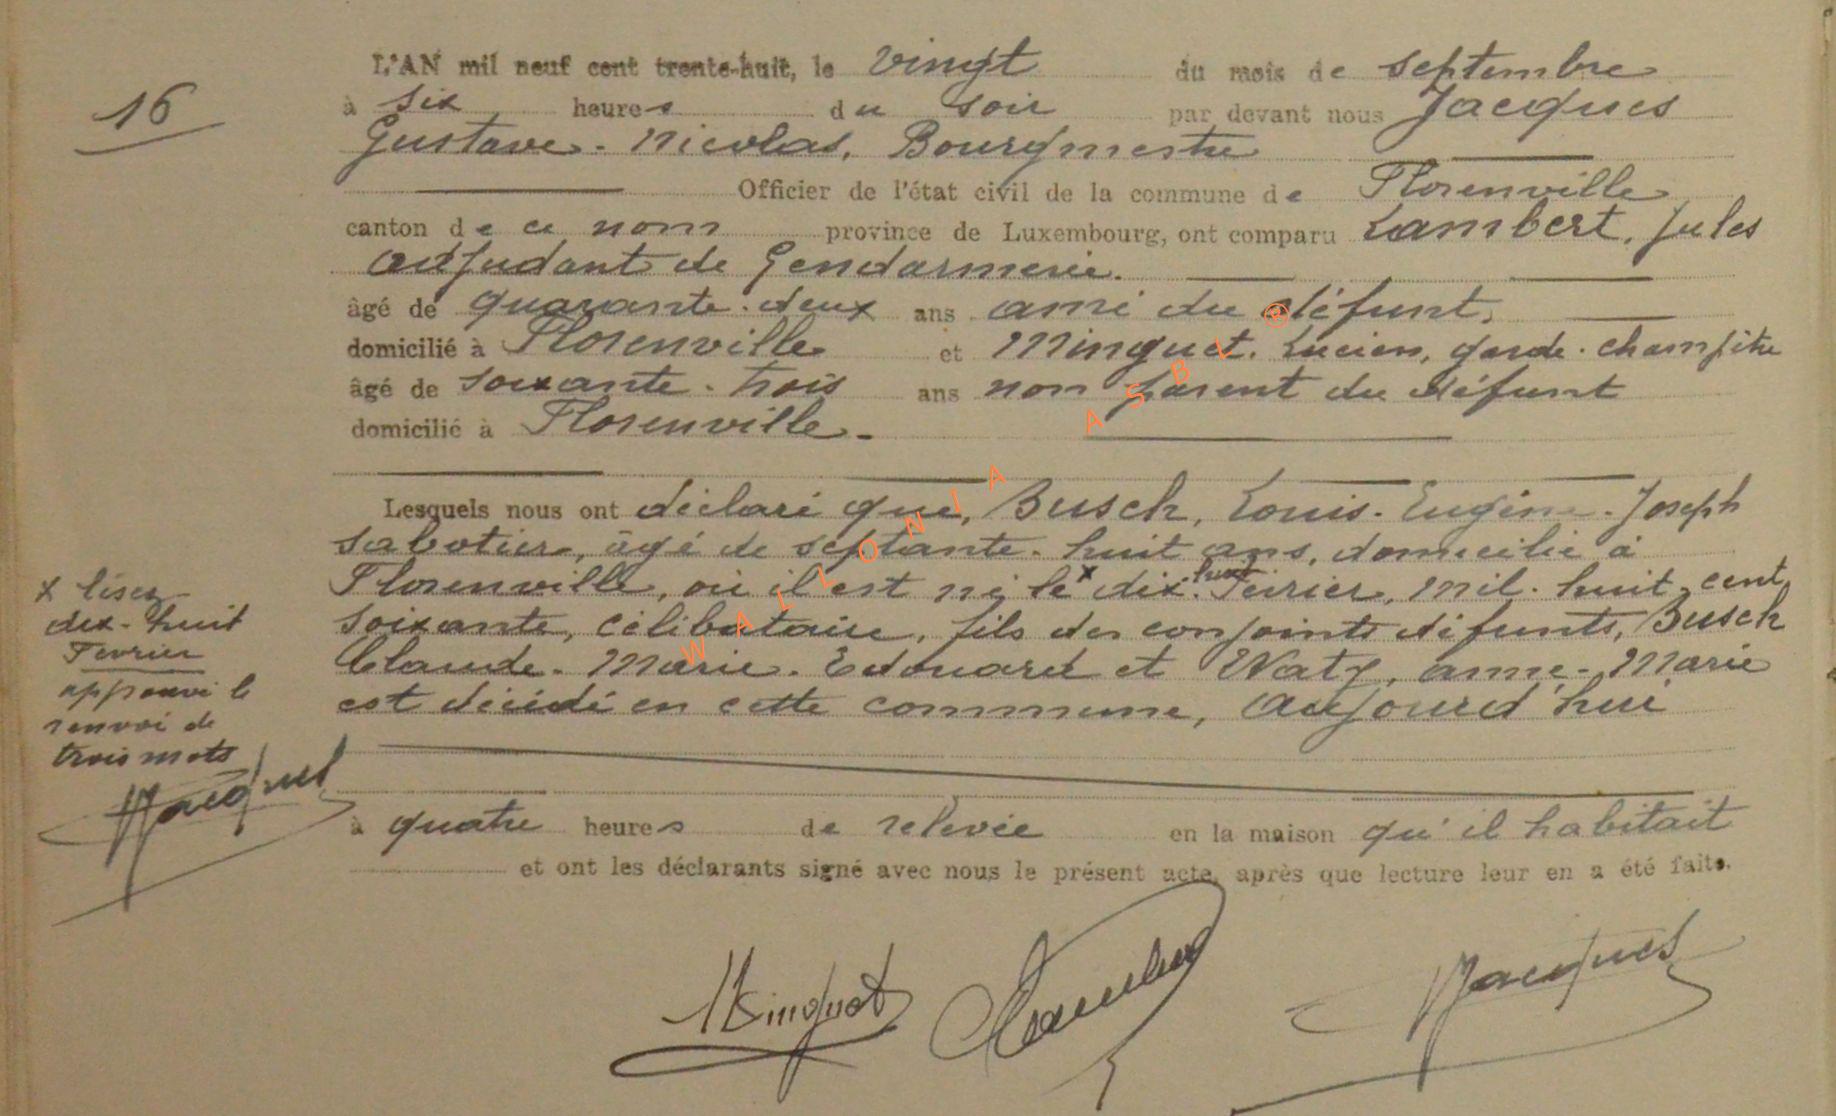 16
L'AN mil neuf cent trente-huit, le vingt du mois de septembre
à six heures du soir par devant nous Jacques
Gustave-Nicolas, Bourgmestre
Officier de l'état civil de la commune de Florenville
canton de ce nom province de Luxembourg, ont comparu Lambert, Jules
adjudant de Gendarmerie.
âgé de quarante-deux ans ami du défunt,
domicilié à Florenville et Minguet, Lucien, garde-champêtre
âgé de soixante-trois ans non parent du défunt
domicilié à Florenville.
Lesquels nous ont déclaré que, Busch, Louis-Eugène-Joseph
sabotier, âgé de septante-huit ans, domicilié à
Florenville, où il est né le x dix-huit Février, mil-huit-cent
soixante, célibataire, fils des conjoints défunts, Busch
Claude-Marie-Edouard et Waty, Anne-Marie
est décédé en cette commune, aujourd'hui
à quatre heures de relevée en la maison qu'il habitait
et ont les déclarants signé avec nous le présent acte, après que lecture leur en a été faite.
x lisez
dix-huit
Février
approuvé le
renvoi de
trois mots
Jacques
Minguet Lambert Jacques
WALLONIA ASBL ®